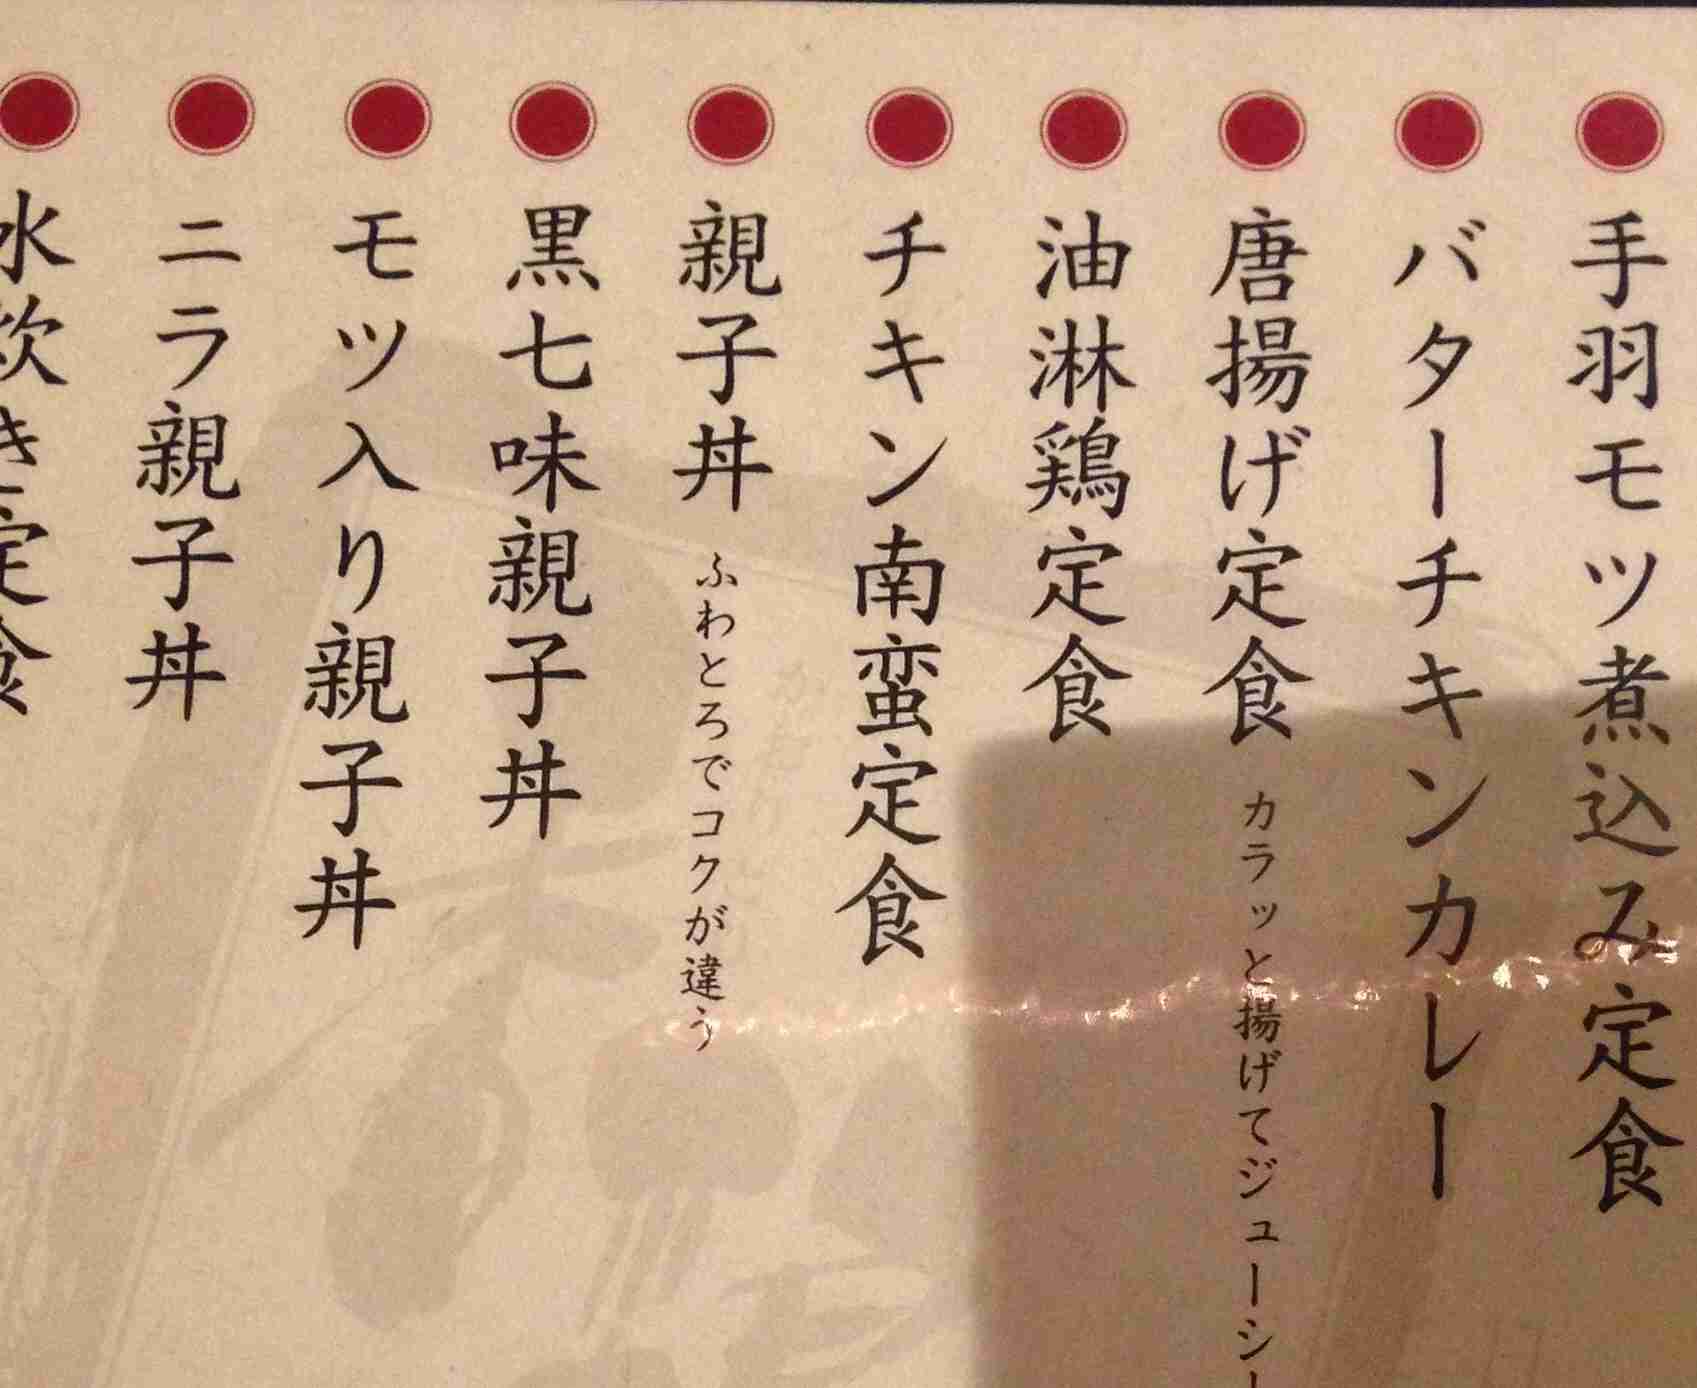 手羽モツ煮込み定食
バターチキンカレー
唐揚げ定食 カラッと揚げてジューシー
油淋鶏定食
チキン南蛮定食
親子丼 ふわとろでコクが違う
黒七味親子丼
モツ入り親子丼
ニラ親子丼
水炊き定食